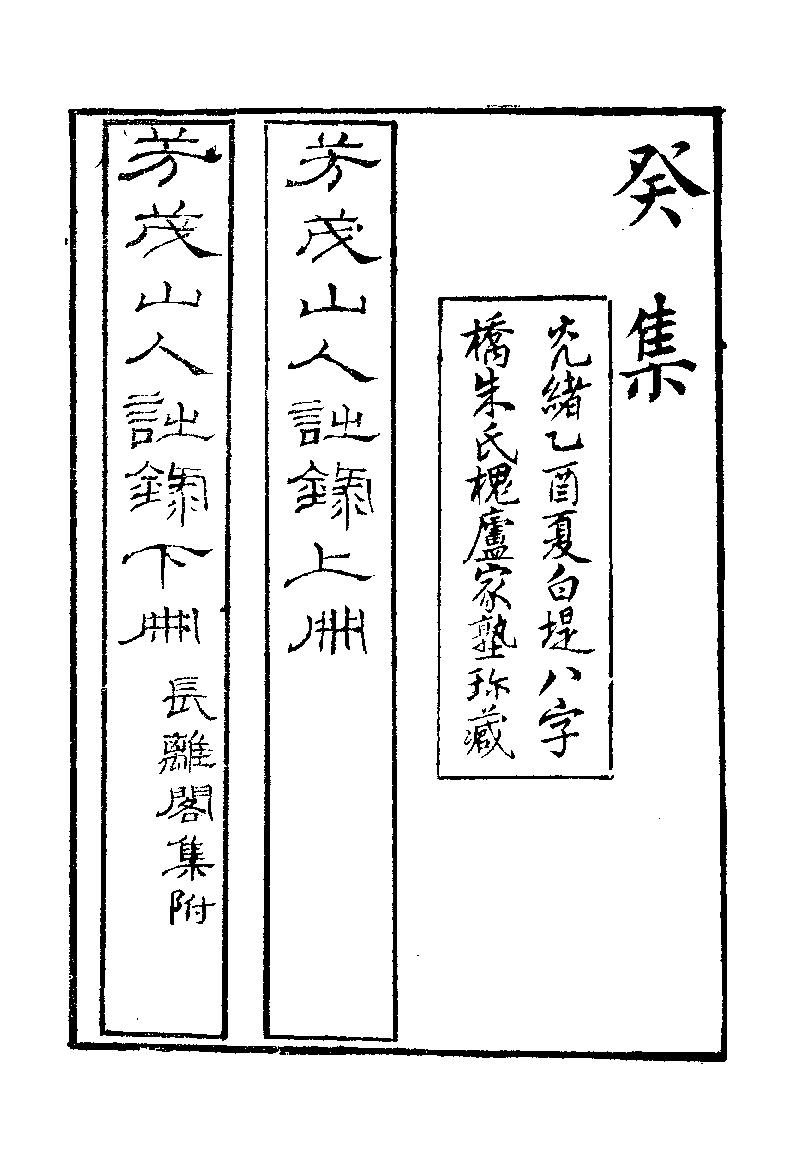 癸集
光緒乙酉夏白堤八字
橋朱氏槐廬家塾珍藏
芳茂山人詩錄上冊
芳茂山人詩錄下冊
長離閣集附